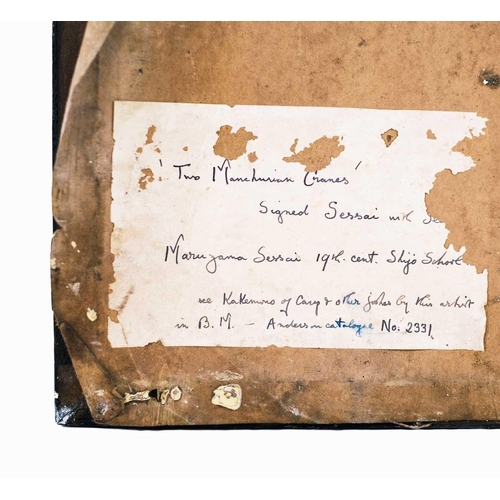 'Two Manchurian Cranes'
Signed Sessai with
Maruyama Sessai 19th. cent. Shijo School
see Kakemono of Carp & other fishes by this artist
in B.M. – Anderson catalogue No: 2331.